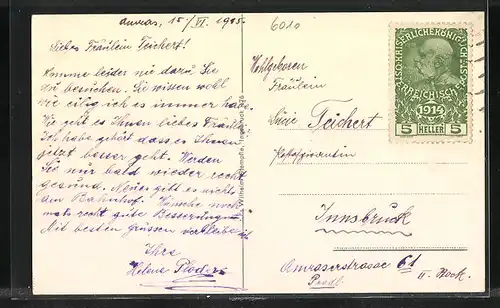 Amras, 15/VI. 1915.
Liebes Fräulein Teichert!
Komme leider nie dazu Sie
zu besuchen. Sie wissen wohl
wie eilig ich es immer habe.
Wie geht es Ihnen liebes Fräulein?
Ich habe gehört dass es Ihnen
jetzt besser geht. Werden
Sie nur bald wieder recht
gesund. Neues gibt es nichts
am Bahnhof. Wünsche noch
mals recht gute Besserung
Mit besten grüssen verbleibe ich
Ihre
Helene
6010
1914
5 HELLER 5
Wohlgeboren
Fräulein
Teichert
Innsbruck
Amraserstrasse 61
Pradl.
II. Stock.